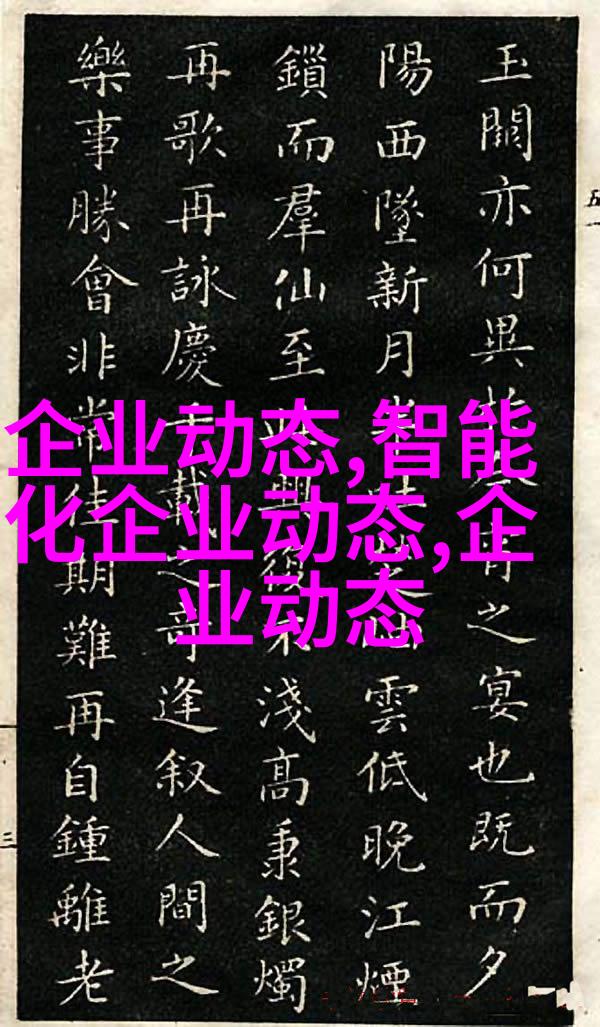 玉闕亦何異於宵之宴也既而夕
陽西墜新月雲低晚江煙
鎖而羣仙至此興復不淺高秉銀燭
再歌再詠慶千載之奇逢叙人間之
樂事勝會非常佳期難再自鍾離老
企业动态,智能
化企业动态,企
业动态
三